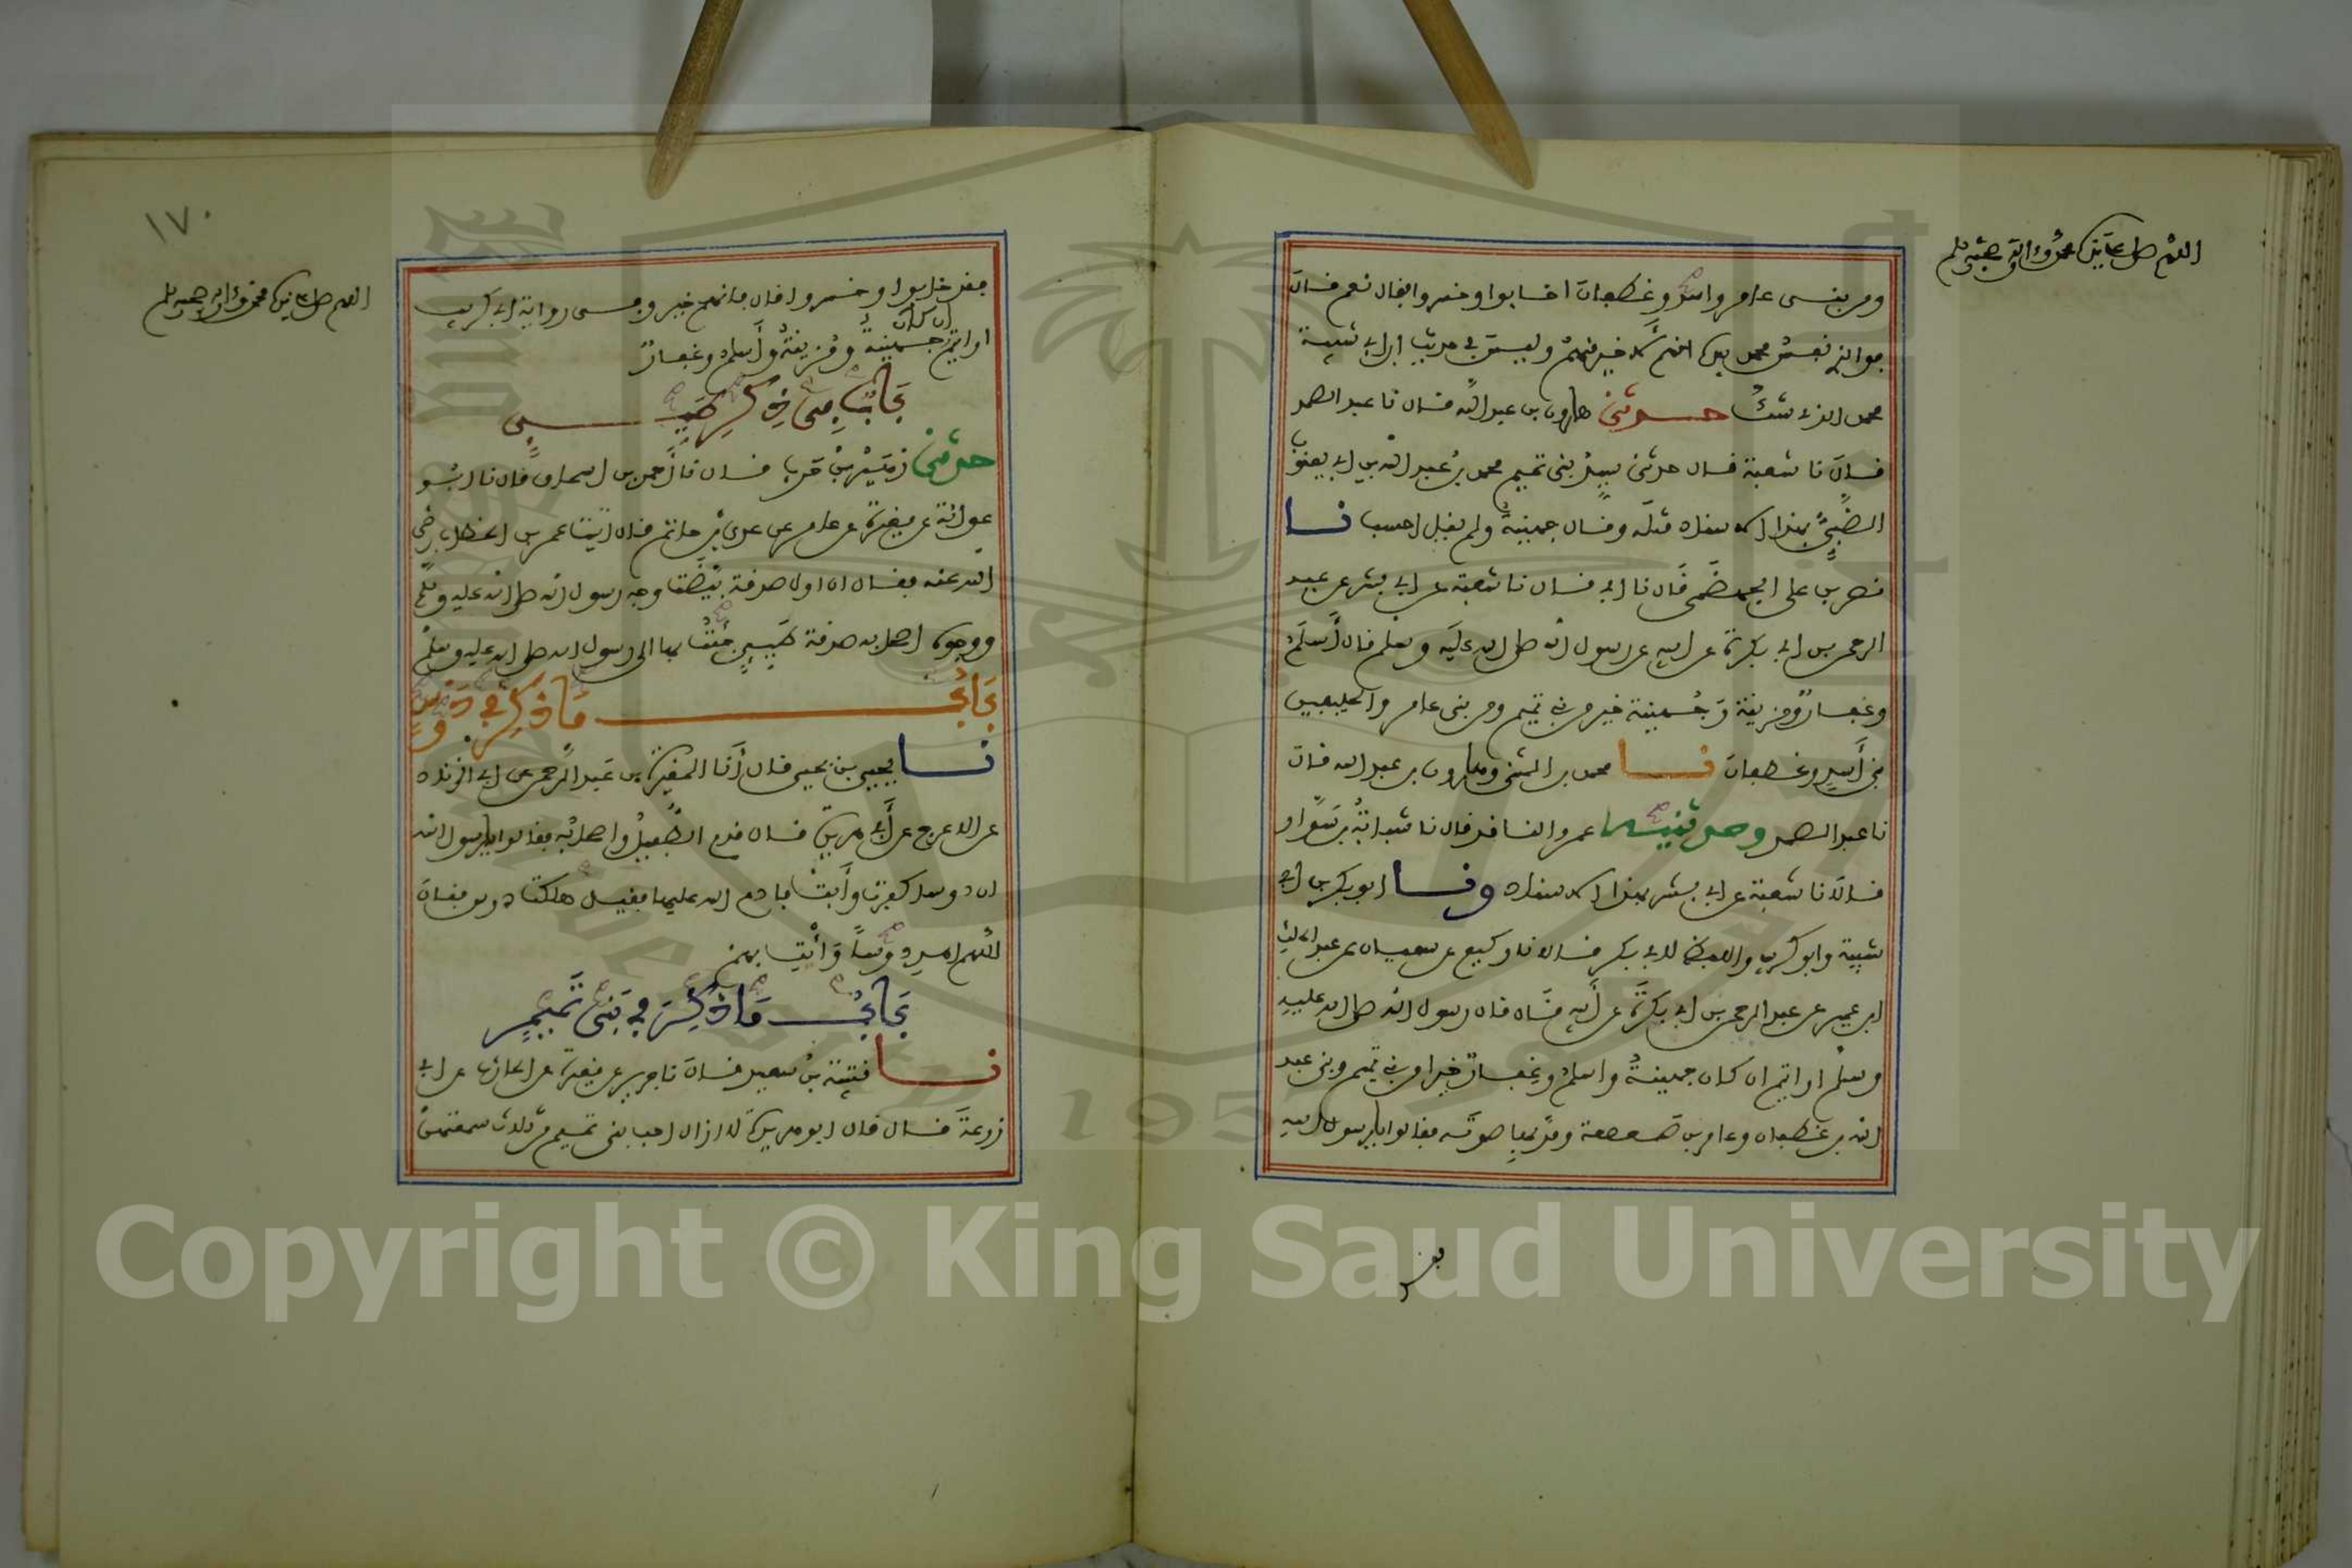 اللهم صل على نبيك محمد وءاله وصحبه وسلم
ومن بنى عامر واسد وغطفان اخابوا وخسروا فقال نعم قال
فوالذي نفس محمد بيده انهم لاخير منهم وليس في حديث ابن ابي شيبة
محمد الذي شك حدثني هارون بن عبد الله قال نا عبد الصمد
قال نا شعبة قال حدثني سيد بنى تميم محمد بن عبد الله بن ابي يعقوب
الضبي بهذا الاسناد مثله وقال جهينة ولم يقل احسب نا
نصر بن على الجهضمي قال نا ابي قال نا شعبة عن ابي بشر عن عبد
الرحمن بن ابي بكرة عن ابيه عن رسول الله صلى الله عليه وسلم قال أسلم
وغفار ومزينة وجهينة خير من بني تميم ومن بنى عامر والحليفين
بني أسد وغطفان نا محمد بن المثنى وهارون بن عبد الله قالا
نا عبد الصمد وحدثنيه عمرو الناقد قال نا شبابة بن سوار
قالا نا شعبة عن ابي بشر بهذا الاسناد ونا ابو بكر بن ابي
شيبة وابو كريب واللفظ لابي بكر قالا نا وكيع عن سفيان عن عبد الملك
ابن عمير عن عبد الرحمن بن ابي بكرة عن أبيه قال قال رسول الله صلى الله عليه
وسلم ارايتم ان كان جهينة واسلم وغفار خيرا من بني تميم وبنى عبد
الله بن غطفان وعامر بن صعصعة ومد بها صوته فقالوا يا رسول الله
فقد
١٧٠
اللهم صل على نبيك محمد وءاله وصحبه وسلم
فقد خابوا وخسروا قال فانهم خير وفى رواية ابي كريب
ارايتم ان كان جهينة ومزينة وأسلم وغفار
باب من ذكر طيىء
حدثني زهير بن حرب قال نا أحمد بن اسحاق قال نا ابو
عوانة عن مغيرة عن عامر عن عدي بن حاتم قال اتيت عمر بن الخطاب رضي
الله عنه فقال ان اول صدقة بيضت وجه رسول الله صلى الله عليه وسلم
ووجوه اصحابه صدقة طيىء جئت بها الى رسول الله صلى الله عليه وسلم
باب ما ذكر في دوس
نا يحيى بن يحيى قال أنا المغيرة بن عبد الرحمن عن ابي الزناد
عن الاعرج عن أبي هريرة قال قدم الطفيل واصحابه فقالوا يا رسول الله
ان دوسا كفرت وأبت فادع الله عليها فقيل هلكت دوس فقال
اللهم اهد دوسا وأت بهم
باب ما ذكر في بنى تميم
نا قتيبة بن سعيد قال نا جرير عن مغيرة عن الحارث عن ابي
زرعة قال قال ابو هريرة لا ازال احب بنى تميم من ثلاث سمعتهن
Copyright © King Saud University
1957